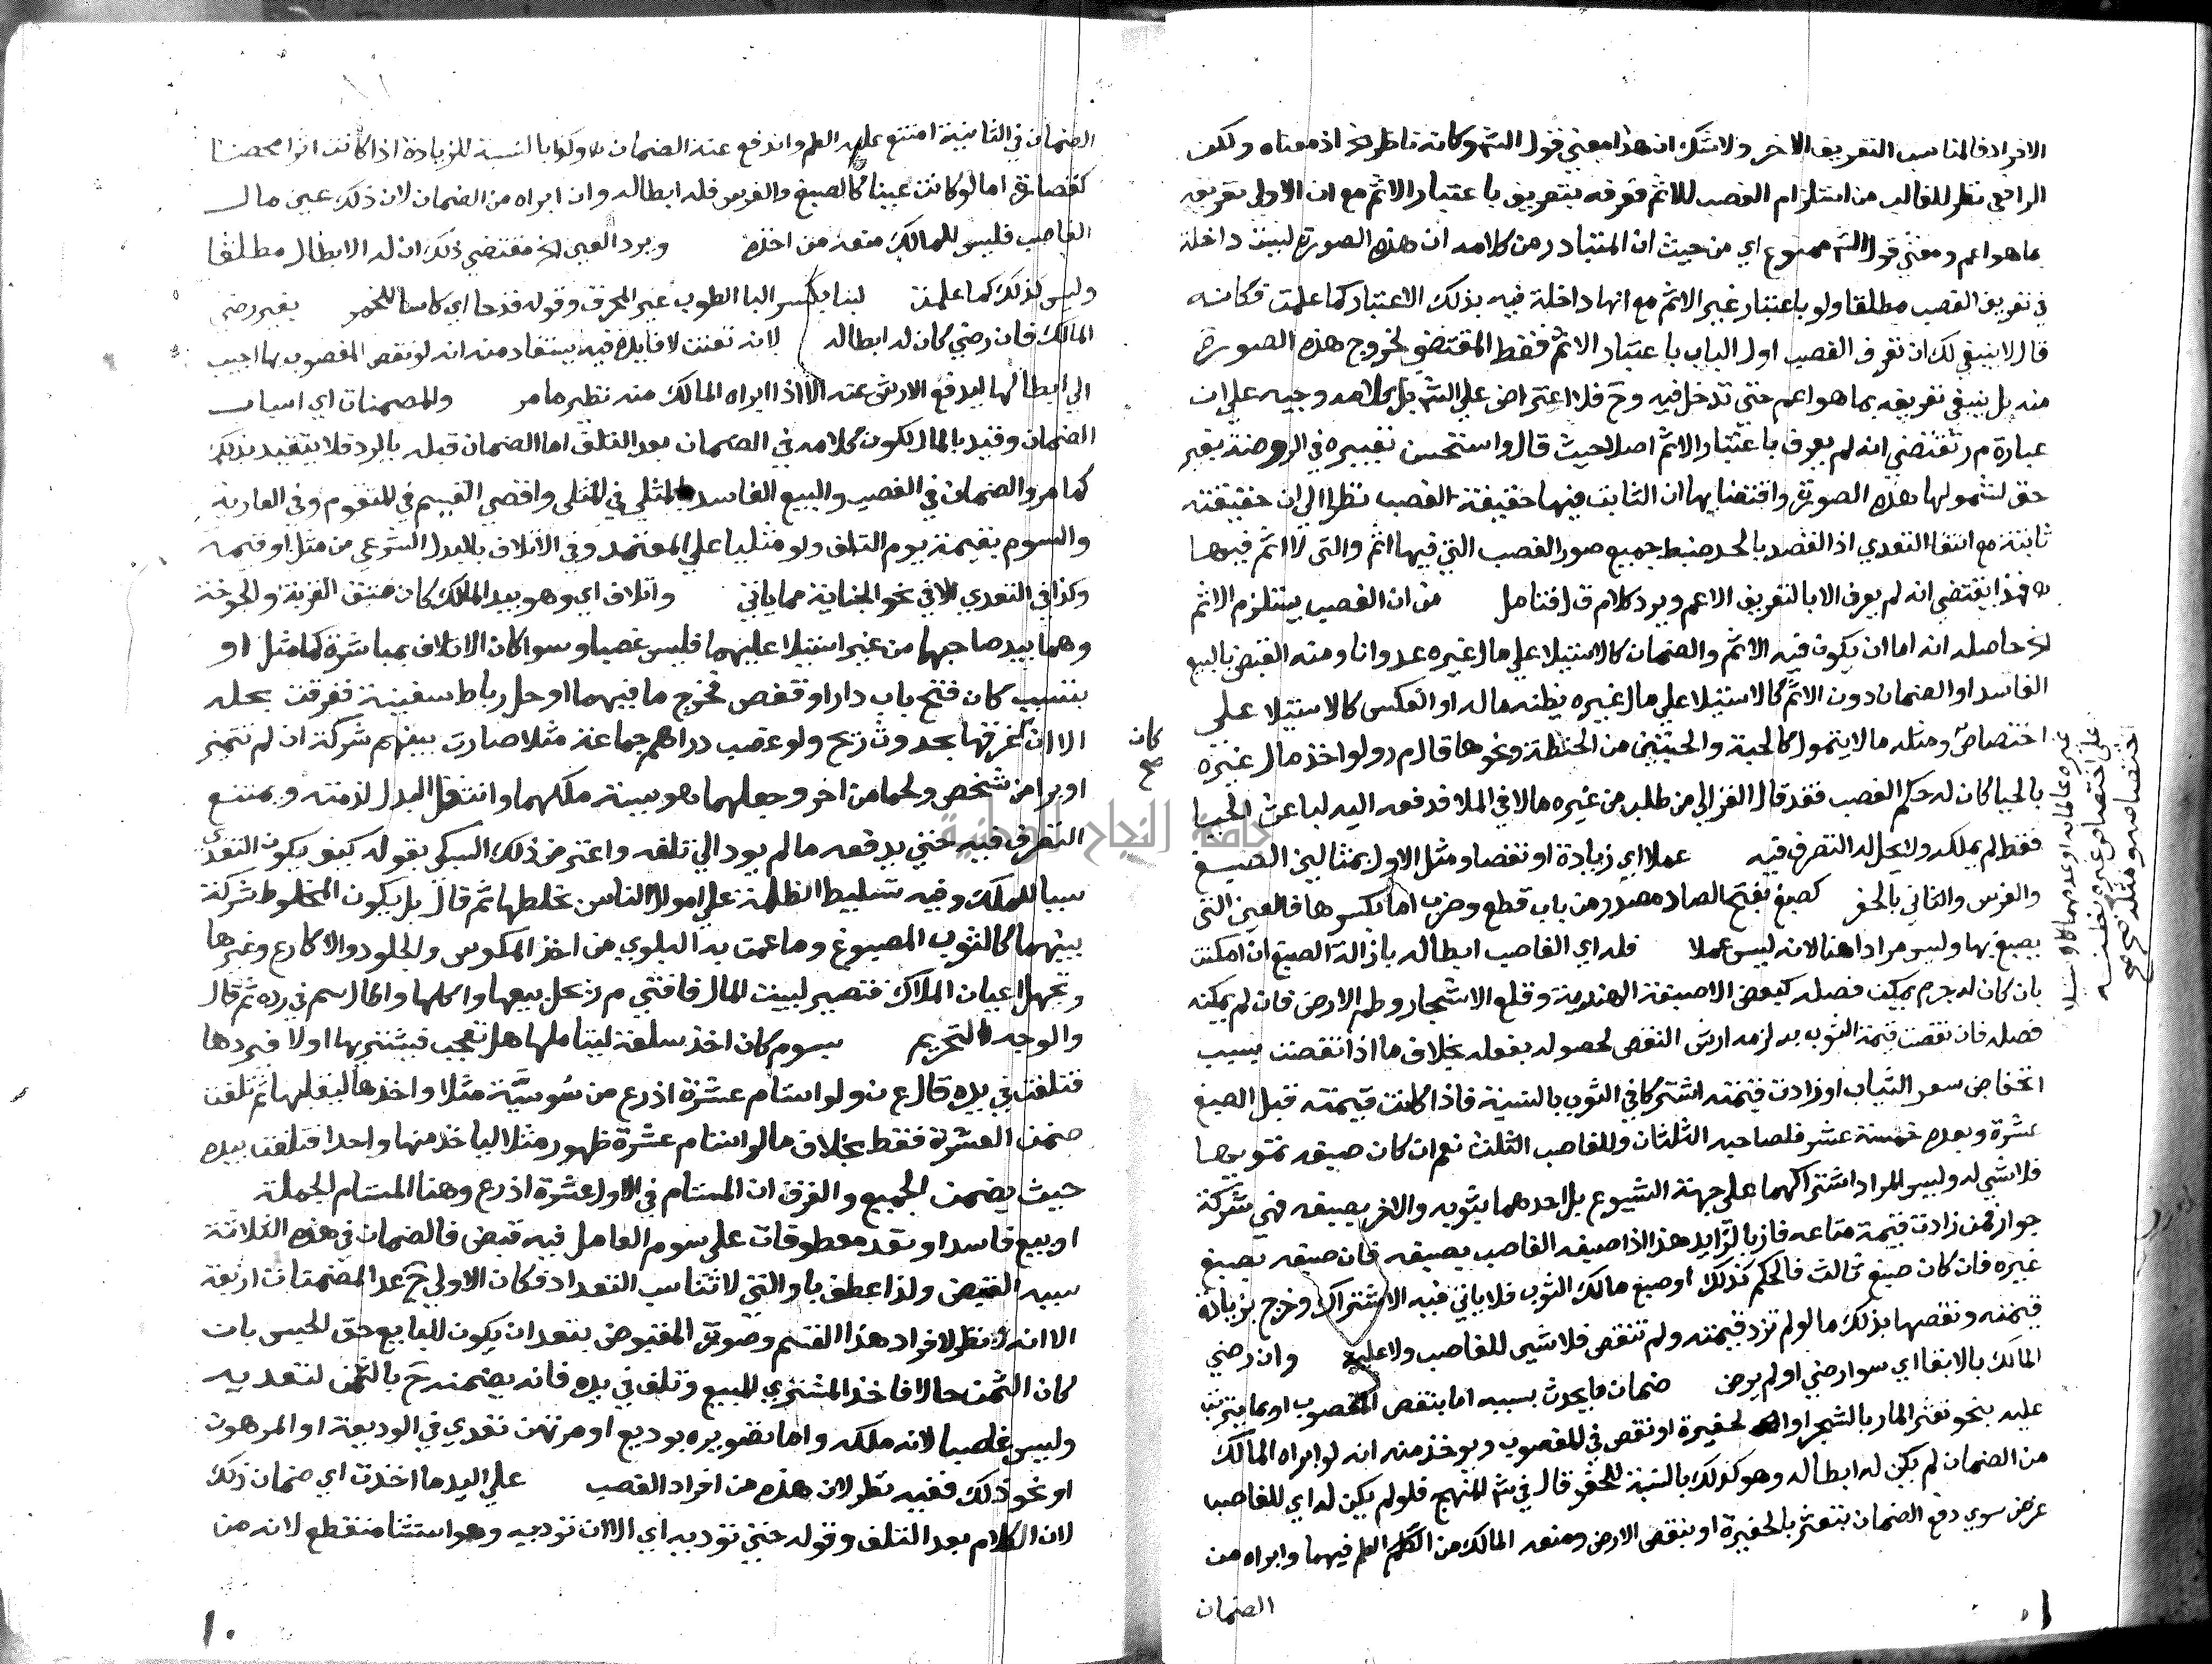 الافراد فالمناسب التعريف الاخر ولا شك ان هذا معنى قول الش وكانه ناظر لخ اذ معناه ولكن
الرافعي نظر للغالب من استلزام الغصب للاثم فعرفه بتعريف باعتبار الاثم مع ان الاولى تعريفه
بما هو اعم ومعنى قول الش ممنوع اي من حيث ان المتبادر من كلامه ان هذه الصورة ليست داخلة
في تعريف الغصب مطلقا ولو باعتبار غير الاثم مع انها داخلة فيه بذلك الاعتبار كما علمت فكانه
قال لا ينبغي لك ان تعرف الغصب اول الباب باعتبار الاثم فقط المقتضي لخروج هذه الصورة
منه بل ينبغي تعريفه بما هو اعم حتى تدخل فيه وح فلا اعتراض على الش بل كلامه وجيه على ان
عبارة م ر تقتضي انه لم يعرف باعتبار الاثم اصلا حيث قال واستحسن تعبيره في الروضة بغير
حق لشمولها هذه الصورة واقتضايها ان الثابت فيها حقيقة الغصب نظرا الى ان حقيقته
ثابتة مع انتفا التعدي اذ القصد بالحد ضبط جميع صور الغصب التي فيها اثم والتي لا اثم فيها
فهذا يقتضي انه لم يعرف الا بالتعريف الاعم ويرد كلام ق ل فتامل من ان الغصب يستلزم الاثم
لخ حاصله انه اما ان يكون فيه الاثم والضمان كالاستيلا على مال غيره عدوانا ومنه القبض بالبيع
الفاسد او الضمان دون الاثم كالاستيلا على مال غيره يظنه ماله او العكس كالاستيلا على
اختصاص ومثله ما لا يتمول كالحبة والحبتين من الحنطة ونحوها قال م ر ولو اخذ مال غيره
بالحيا كان له حكم الغصب فقد قال الغزالي من طلب من غيره مالا في الملا فدفعه اليه لباعث الحيا
فقط لم يملكه ولا يحل له التصرف فيه عملا اي زيادة او نقصا ومثل الاول بمثالين الصبغ
والغرس والثاني بالحفر كصبغ بفتح الصاد مصدر من باب قطع وضرب اما بكسرها فالعين التي
يصبغ بها وليس مرادا هنا لانه ليس عملا فله اي الغاصب ابطاله بازالة الصبغ ان امكنت
بان كان له جرم يمكن فصله كبعض الاصبغة الهندية وقلع الاشجار وطم الارض فان لم يمكنه
فصله فان نقصت قيمة الثوب به لزمه ارش النقص لحصوله بفعله بخلاف ما اذا نقصت بسبب
انخفاض سعر الثياب او زادت قيمته اشتركا في الثوب بالنسبة فاذا كانت قيمته قبل الصبغ
عشرة وبعده خمسة عشر فلصاحبه الثلثان وللغاصب الثلث نعم ان كان صبغه تمويها
فلا شي له وليس المراد اشتراكهما على جهة الشيوع بل احدهما بثوبه والاخر بصبغه فهي شركة
جوار فمن زادت قيمة متاعه فاز بالزايد هذا اذا صبغه الغاصب بصبغه فان صبغه بصبغ
غيره فان كان صبغ ثالث فالحكم كذلك او صبغ مالك الثوب فلا ياتي فيه الاشتراك وخرج بزيادة
قيمته ونقصها بذلك ما لو لم تزد قيمته ولم تنقص فلا شي للغاصب ولا عليه وان رضي
المالك بالابقا اي سوا رضي او لم يرض ضمان ما يحدث بسببه اما بنقص المغصوب او بما يترتب
عليه بنحو تعثر المار بالشجر او الحفيرة او نقص في المغصوب ويوخذ منه انه لو ابراه المالك
من الضمان لم يكن له ابطاله وهو كذلك بالنسبة للحفر قال في ش المنهج فلو لم يكن له اي للغاصب
غرض سوى دفع الضمان بتعثر بالحفيرة او بنقص الارض ومنعه المالك من الطم فيهما وابراه من
الضمان
كان
صح
غيره عالما به او عدمها كاوسله
على اختصاص غيره يظنه
اختصاصه ومثله صح
الضمان في الثانية امتنع عليه الطم واندفع عنه الضمان وكذا بالنسبة للزيادة اذا كانت اثرا محضا
كقصارة اما لو كانت عينا كالصبغ والغرس فله ابطاله وان ابراه من الضمان لان ذلك عين مال
الغاصب فليس للمالك منعه من اخذه ويرد العين لخ مقتضي ذلك ان له الابطال مطلقا
وليس كذلك كما علمت لبنا بكسر البا الطوب غير المحرق وقوله قدحا اي كاسا للخمر بغير رضى
المالك فان رضي كان له ابطاله لانه تعنت لا فايدة فيه يستفاد منه انه لو نقص المغصوب بها اجيب
الى ابطالها ليدفع الارش عنه الا اذا ابراه المالك منه نظير ما مر والمضمنات اي اسباب
الضمان وقيد بالمال لكون كلامه في الضمان بعد التلف اما الضمان قبله بالرد فلا يتقيد بذلك
كما مر والضمان في الغصب والبيع الفاسد بالمثلي في المثلى واقصى القيم في المتقوم وفي العارية
والسوم بقيمة يوم التلف ولو مثليا على المعتمد وفي الاتلاف بالبدل الشرعي من مثل او قيمة
وكذا في التعدي الا في نحو الجناية مما ياتي واتلاف اي وهو بيد المالك كان شق القربة والجوخة
وهما بيد صاحبهما من غير استيلا عليهما فليس غصبا وسوا كان الاتلاف بمباشرة كما مثل او
بتسبب كان فتح باب دار او قفص فخرج ما فيهما او حل رباط سفينة فغرقت بحله
الا ان كان غرقها بحدوث ريح ولو غصب دراهم جماعة مثلا صارت بينهم شركة ان لم تتميز
او برا من شخص ولحما من اخر وجعلهما هريسة ملكهما وانتقل البدل لذمته ويمتنع
التصرف فيه حتى يدفعه ما لم يود الى تلفه واعترض ذلك السبكي بقوله كيف يكون التعدي
سببا للملك وفيه تسليط الظلمة على اموال الناس بخلطها ثم قال بل يكون المخلوط شركة
بينهما كالثوب المصبوغ وما عمت به البلوي من اخذ المكوس والجلود والاكارع وغيرها
وتجهل اعيان الملاك فتصير لبيت المال فافتى م ر بحل بيعها واكلها والمال سم في رده ثم قال
والوجه التحريم بسوم كان اخذ سلعة ليتاملها هل تعجبه فيشتريها اولا فيردها
فتلفت في يده قال ع ن ولو استام عشرة اذرع من شوسية مثلا واخذها ليقبلها ثم تلفت
ضمن العشرة فقط بخلاف ما لو استام عشرة ظهور مثلا لياخذ منها واحدا فتلفت بيده
حيث يضمن الجميع والفرق ان المستام في الاول عشرة اذرع وهنا المستام الجملة
او بيع فاسد او بقد معطوفات على سوم العامل فيه قبض فالضمان في هذه الثلاثة
سببه القبض ولذا عطف باو التي لا تناسب التعداد فكان الاولى ح عد المضمنات اربعة
الا انه نظر لافراد هذا القسم وصورة المقبوض بتعد ان يكون للبايع حق الحبس بان
كان الثمن حالا فاخذ المشتري المبيع وتلف في يده فانه يضمنه ح بالثمن لتعديه
وليس غاصبا لانه ملكه واما تصويره بوديع او مرتهن تعدي في الوديعة او المرهون
او نحو ذلك ففيه نظر لان هذه من افراد الغصب على اليد ما اخذت اي ضمان ذلك
لان الكلام بعد التلف وقوله حتى توديه اي الا ان توديه وهو استثنا منقطع لانه من
١٠